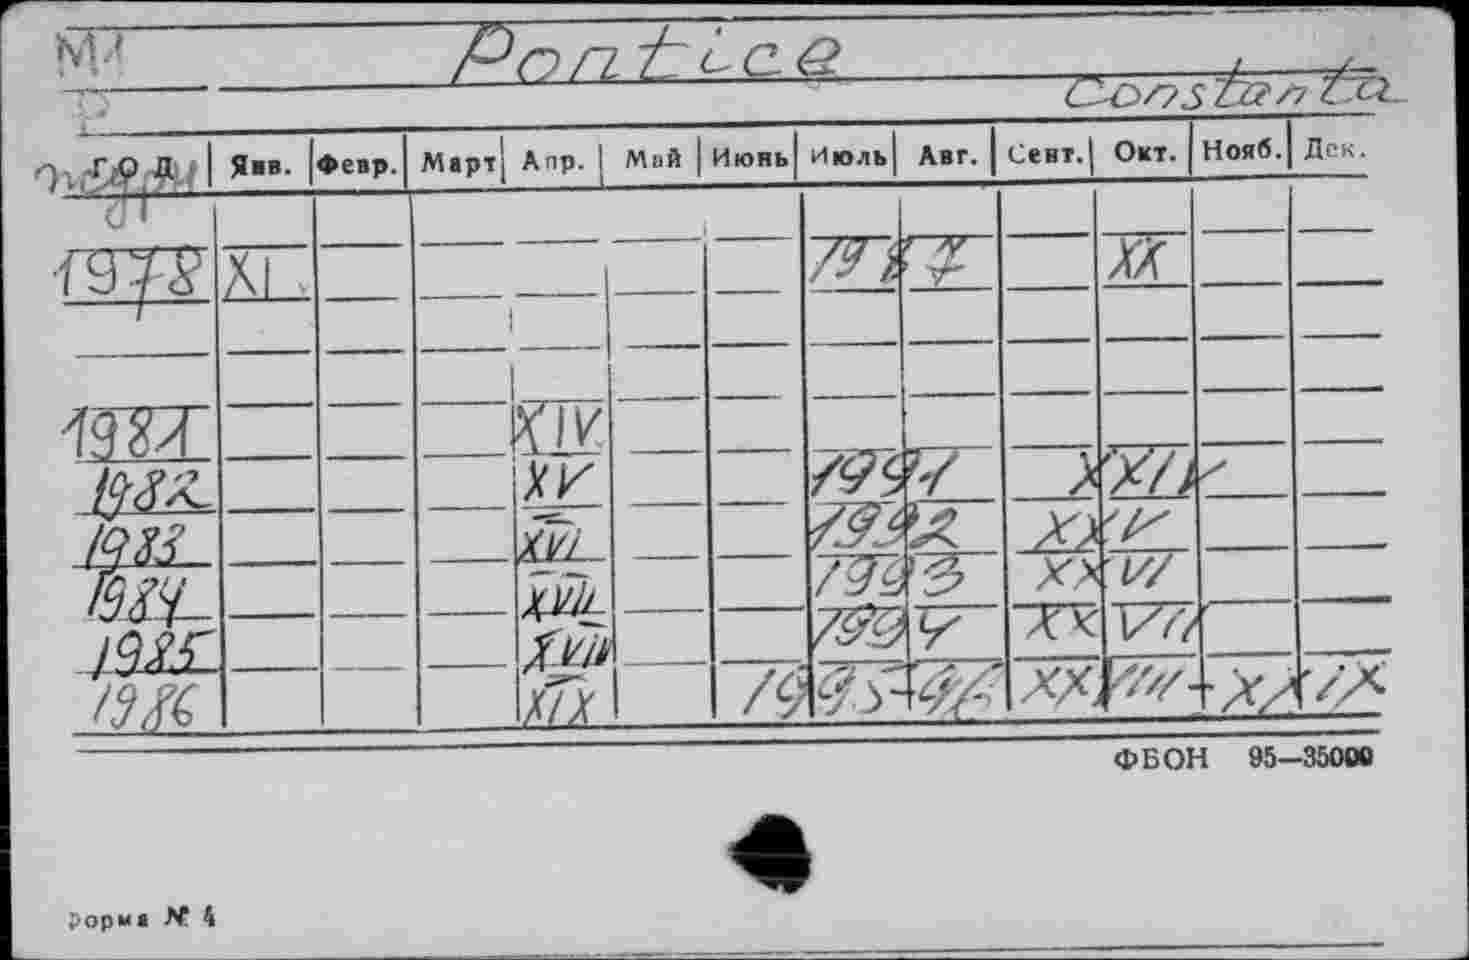 Pontice
Constanta
Год Янв. Февр. Март Апр. Май Июнь Июль Авг. Сент. Окт. Нояб. Дек.
1978 XI 1987 XX
1981 XIV
1982 XV 1991 XXIV
1983 XVI 1992 XXV
1984 XVII 1993 XXVI
1985 XVIII 1994 XXVII
1986 XIX 1995-96 XXVIII-XXIX
ФБОН 95—35000
Форма № 4